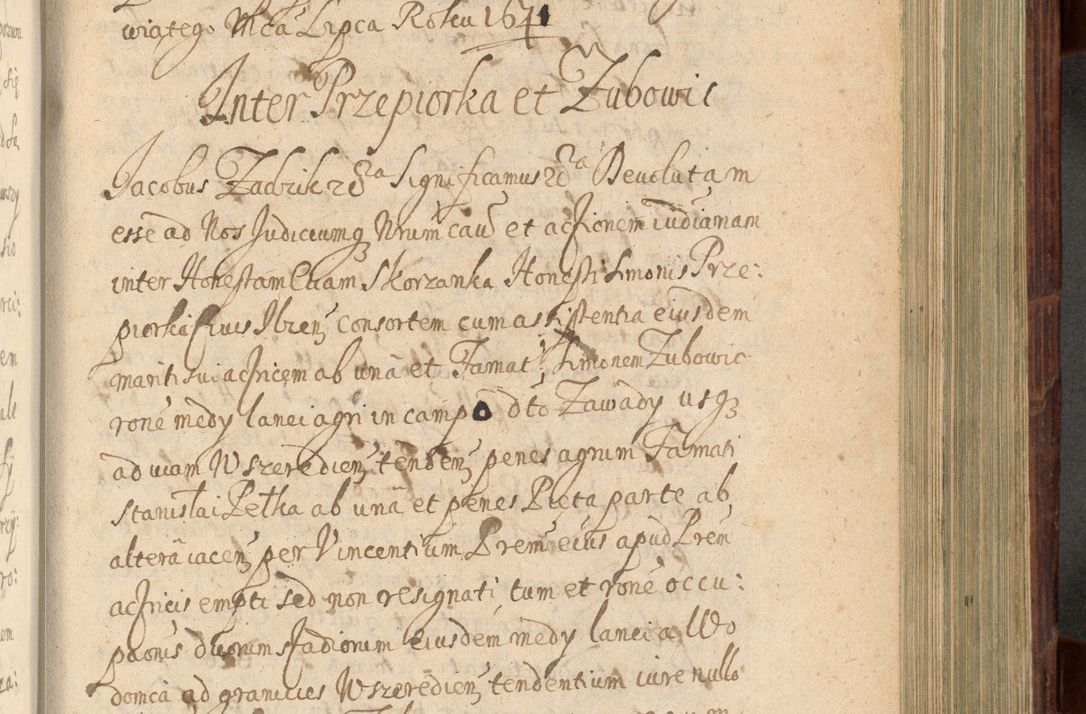 wiątego Mca Lipca Roku 1641
Inter Przepiorka et Zubowic
Jacobus Zadzik &c Significamus &c Devolutam
esse ad Nos Judiciumq Nrum cau et actionem iudiariam
inter Honestam Evam Skorzanka Honesti Simonis Prze:
piorka civis Ilzen consortem cum assistentia eiusdem
mariti sui actricem ab una et Famat: Simonem Zubowic
rone medy lanei agri in campo dto Zawady usq
ad viam Wszeredien tenden penes agrum Famati
Stanislai Petka ab una et penes Pieta parte ab
altera iacen per Vincentium Prem eius apud Prem
actricis empti sed non resignati tum et rone occu:
paonis duorum stadiorum eiusdem medy lanei a Wo
domca ad granicies Wszeredien tendentium iure nullo